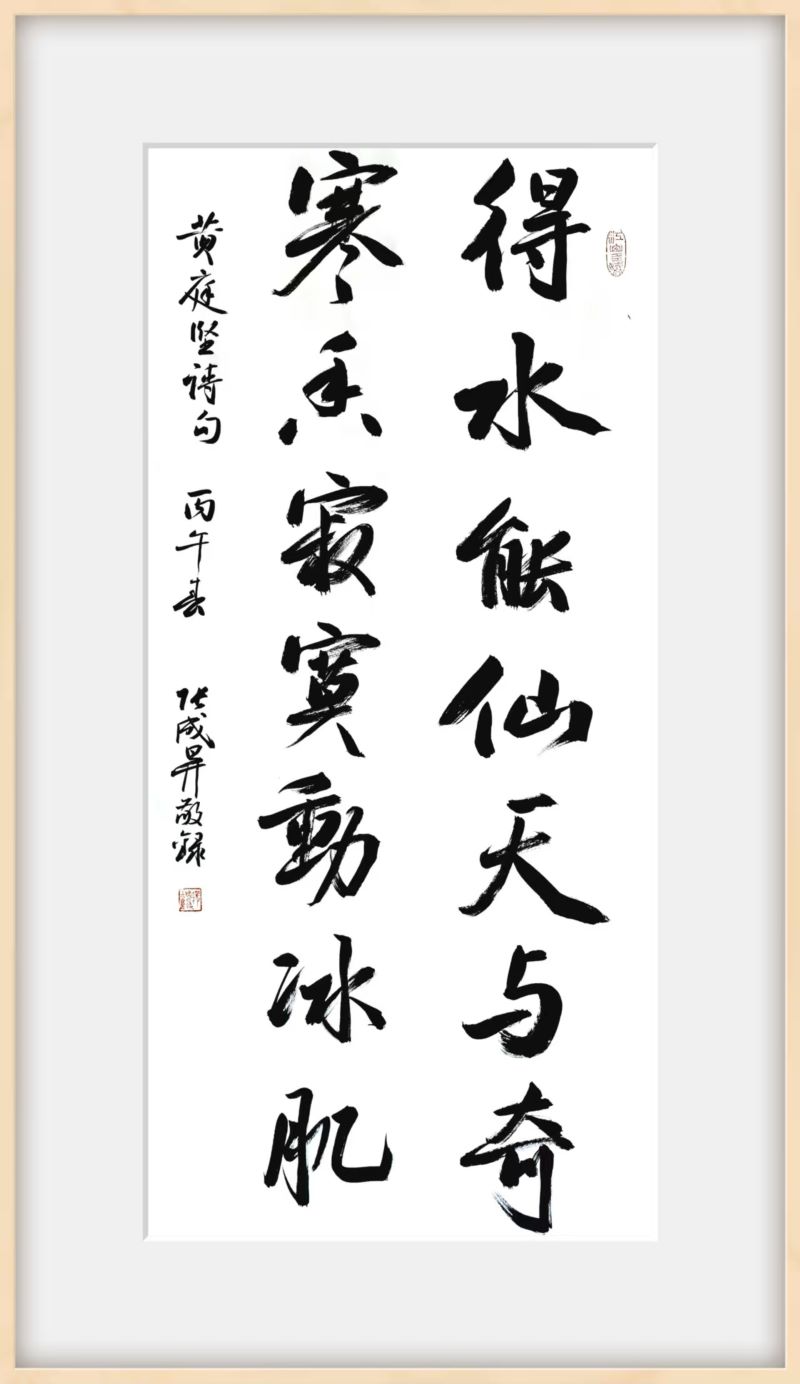 得水能仙天与奇
寒香寂寞動冰肌
黄庭坚诗句 丙午春 张成昇敬録